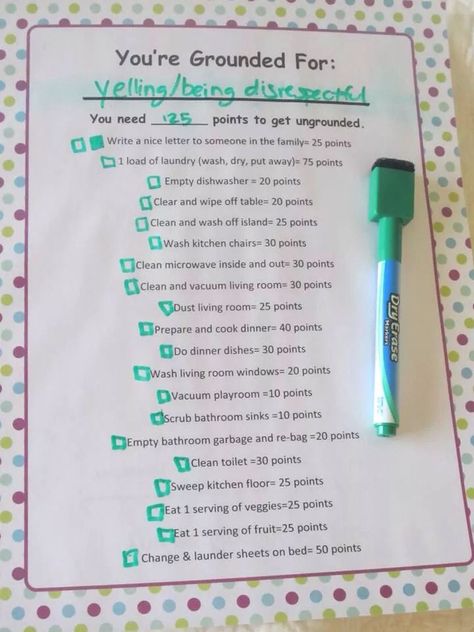 You're Grounded For:
yelling/being disrespectful
You need 125 points to get ungrounded.
Write a nice letter to someone in the family= 25 points
1 load of laundry (wash, dry, put away)= 75 points
Empty dishwasher = 20 points
Clear and wipe off table= 20 points
Clean and wash off island= 25 points
Wash kitchen chairs= 30 points
Clean microwave inside and out= 30 points
Clean and vacuum living room= 30 points
Dust living room= 25 points
Prepare and cook dinner= 40 points
Do dinner dishes= 30 points
Wash living room windows= 20 points
Vacuum playroom =10 points
Scrub bathroom sinks =10 points
Empty bathroom garbage and re-bag =20 points
Clean toilet =30 points
Sweep kitchen floor= 25 points
Eat 1 serving of veggies=25 points
Eat 1 serving of fruit=25 points
Change & launder sheets on bed= 50 points
Dry Erase
Marker